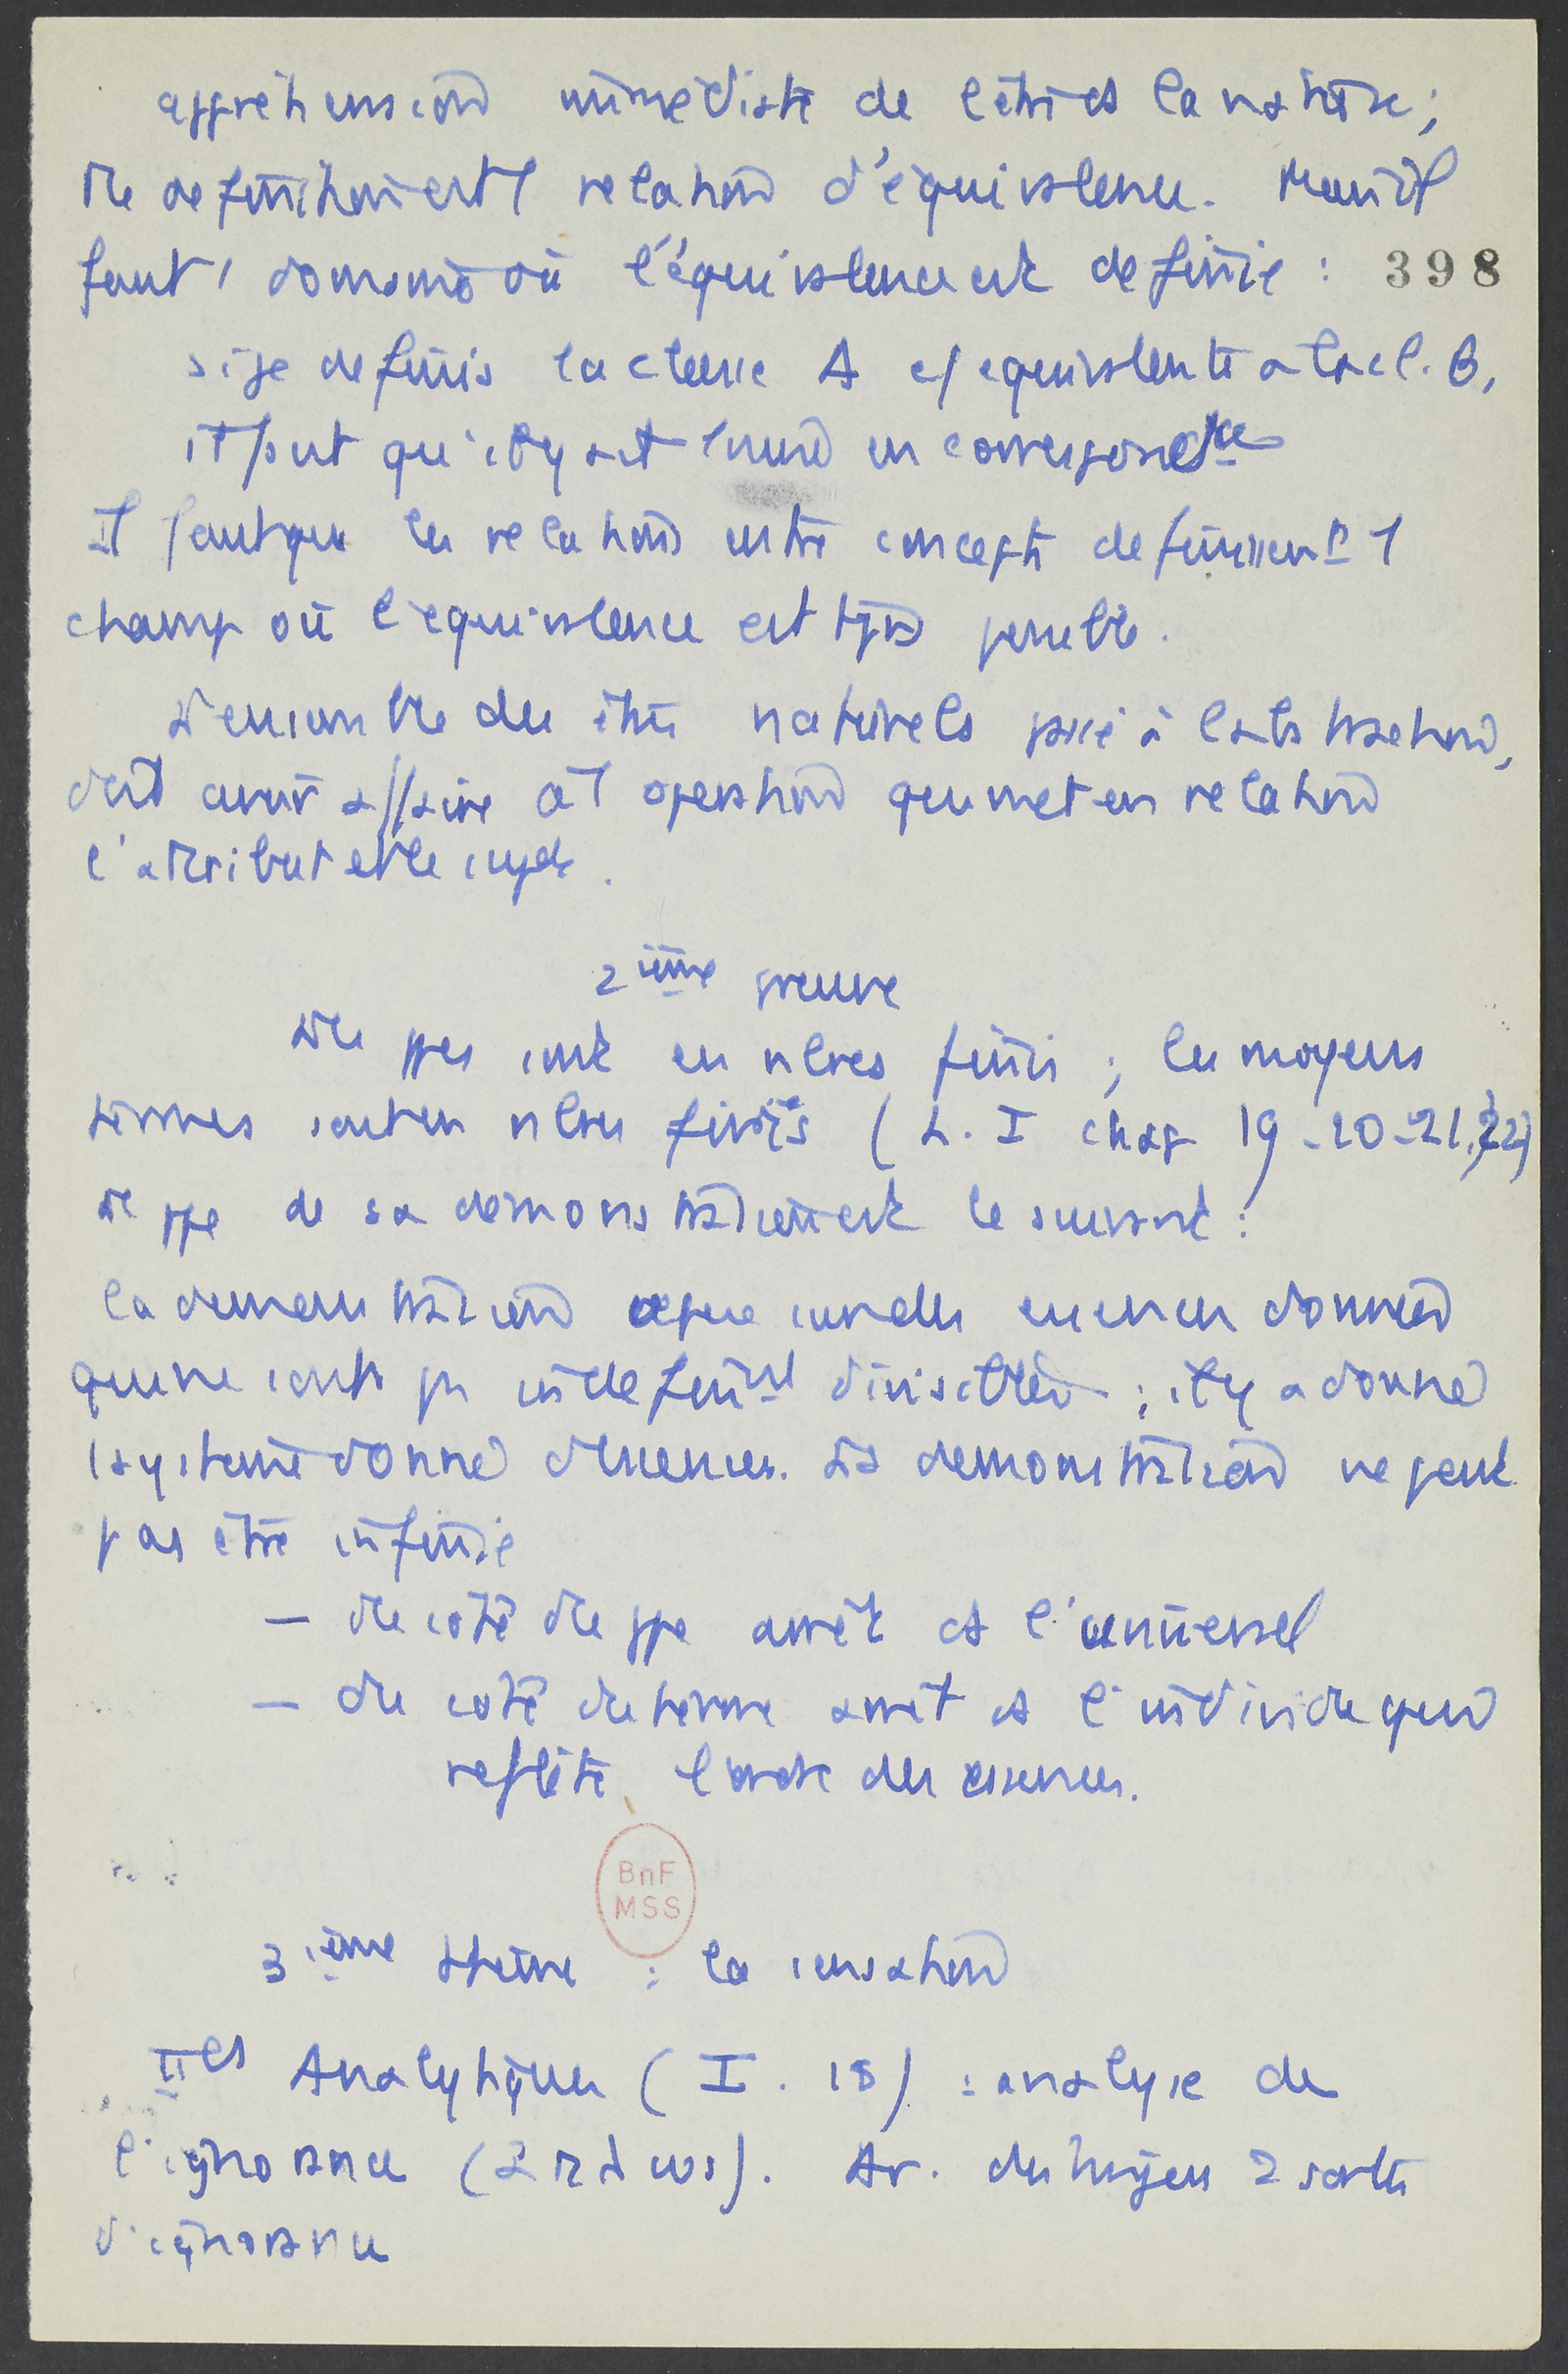 appréhension immédiate de l'être et la nature ;
Me definition est 1 relation d'équivalence. Mais il
faut 1 domaine où l'équivalence est definie : 398
si je definis la classe A c/ equivalente a la cl. B,
il faut qu'il y ait 1 mise en correspondce
Il faut que les relations entre concepts definissent 1
champ où l'equivalence est tjrs possible.
L'ensemble des êtres naturels passé à l'abstraction,
doit avoir affaire à 1 operation qui met en relation
l'attribut et le sujet.
2ième preuve
Les ppes sont en nbres finis ; les moyens
termes sont en nbres finis (L. I chap 19-20-21, 22)
le ppe de sa démonstration est le suivant :
la demonstration opère sur des essences données
qui ne sont ps indefinimt divisibles ; il y a donné
1 système donné d'essences. La demonstration ne peut
pas etre infinie
— du coté du ppe arrêt est l'universel
— du coté du terme arret est l'individu qui
reflète l'ordre des essences.
BnF
MSS
3ième thème : la sensation
IIes Analytiques (I. 18) : analyse de
l'ignorance (). Ar. distingue 2 sortes
d'ignorance